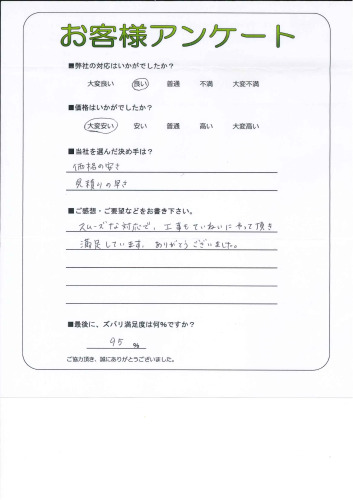 お客様アンケート
■弊社の対応はいかがでしたか？
大変良い 良い 普通 不満 大変不満
■価格はいかがでしたか？
大変安い 安い 普通 高い 大変高い
■当社を選んだ決め手は？
価格の安さ
見積りの早さ
■ご感想・ご要望などをお書き下さい。
スムーズな対応で、工事もていねいにやって頂き
満足しています。ありがとうございました。
■最後に、ズバリ満足度は何％ですか？
95 ％
ご協力頂き、誠にありがとうございました。